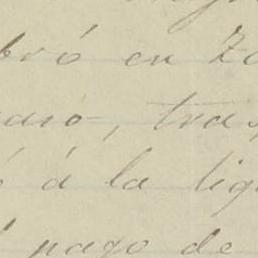 bró en Za
naro, tras
ó á la lig
pago de